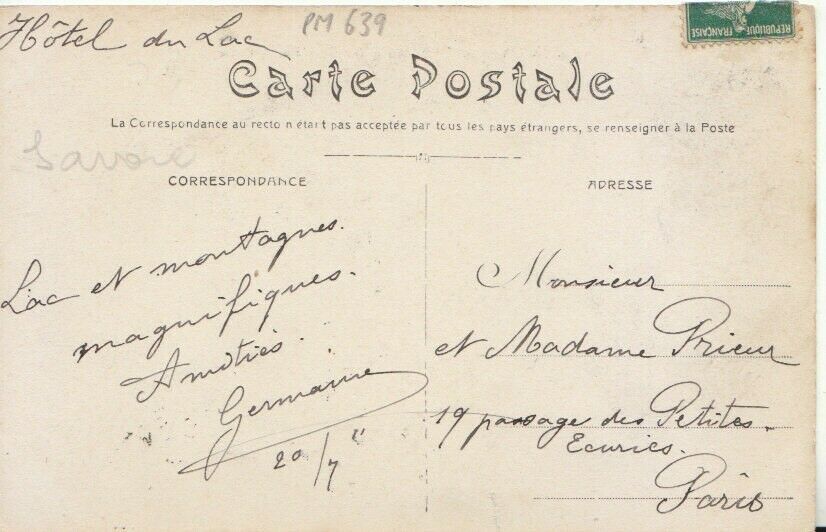 Hôtel du Lac
PM 639
REPUBLIQUE FRANÇAISE
Carte Postale
La Correspondance au recto n'étant pas acceptée par tous les pays étrangers, se renseigner à la Poste
Savoie
CORRESPONDANCE
Lac et montagnes
magnifiques.
Amitiés.
Germaine
20/7 "
ADRESSE
Monsieur
et Madame Prieur
19 passage des Petites-
Ecuries.
Paris